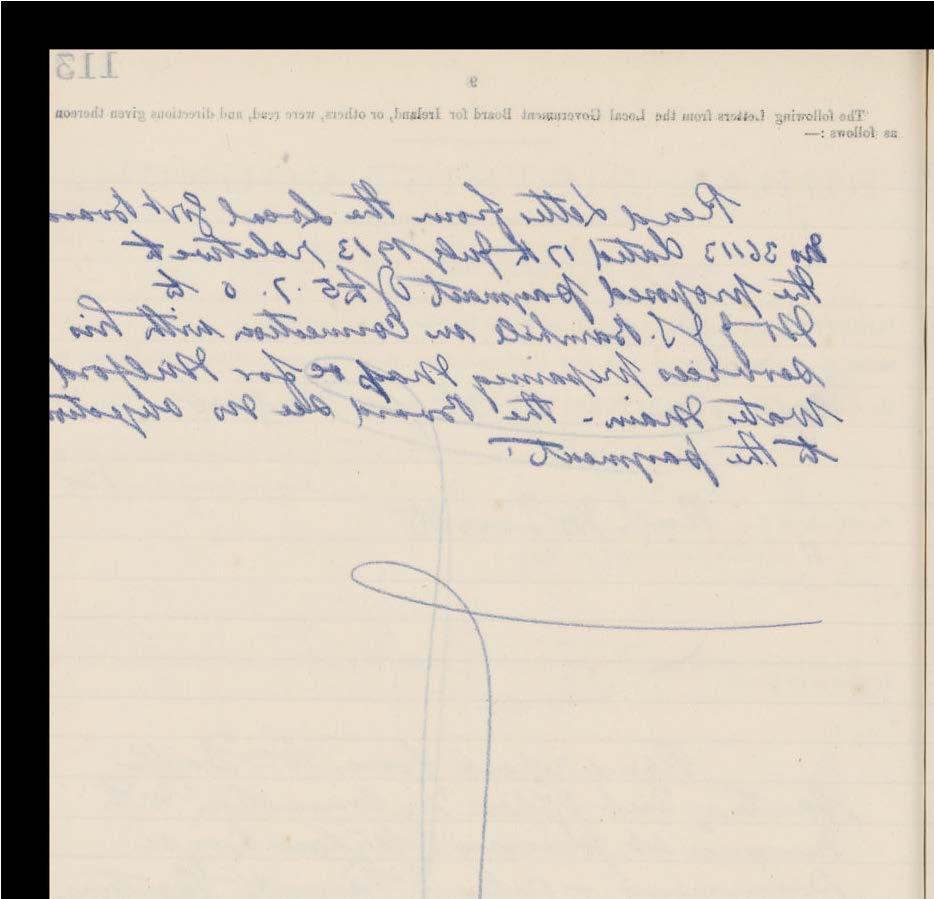 113
9
The following Letters from the Local Government Board for Ireland, or others, were read, and directions given thereon
as follows :—
Read Letter from the Local Govt Board
No 36113 dated 17th July 1913 relative to
the proposed payment of £5. 7. 6 to
Mr J. S. Barnhill in Connection with his
Services preparing Map re for Milford
Water Main - the Board see no objection
to the payment